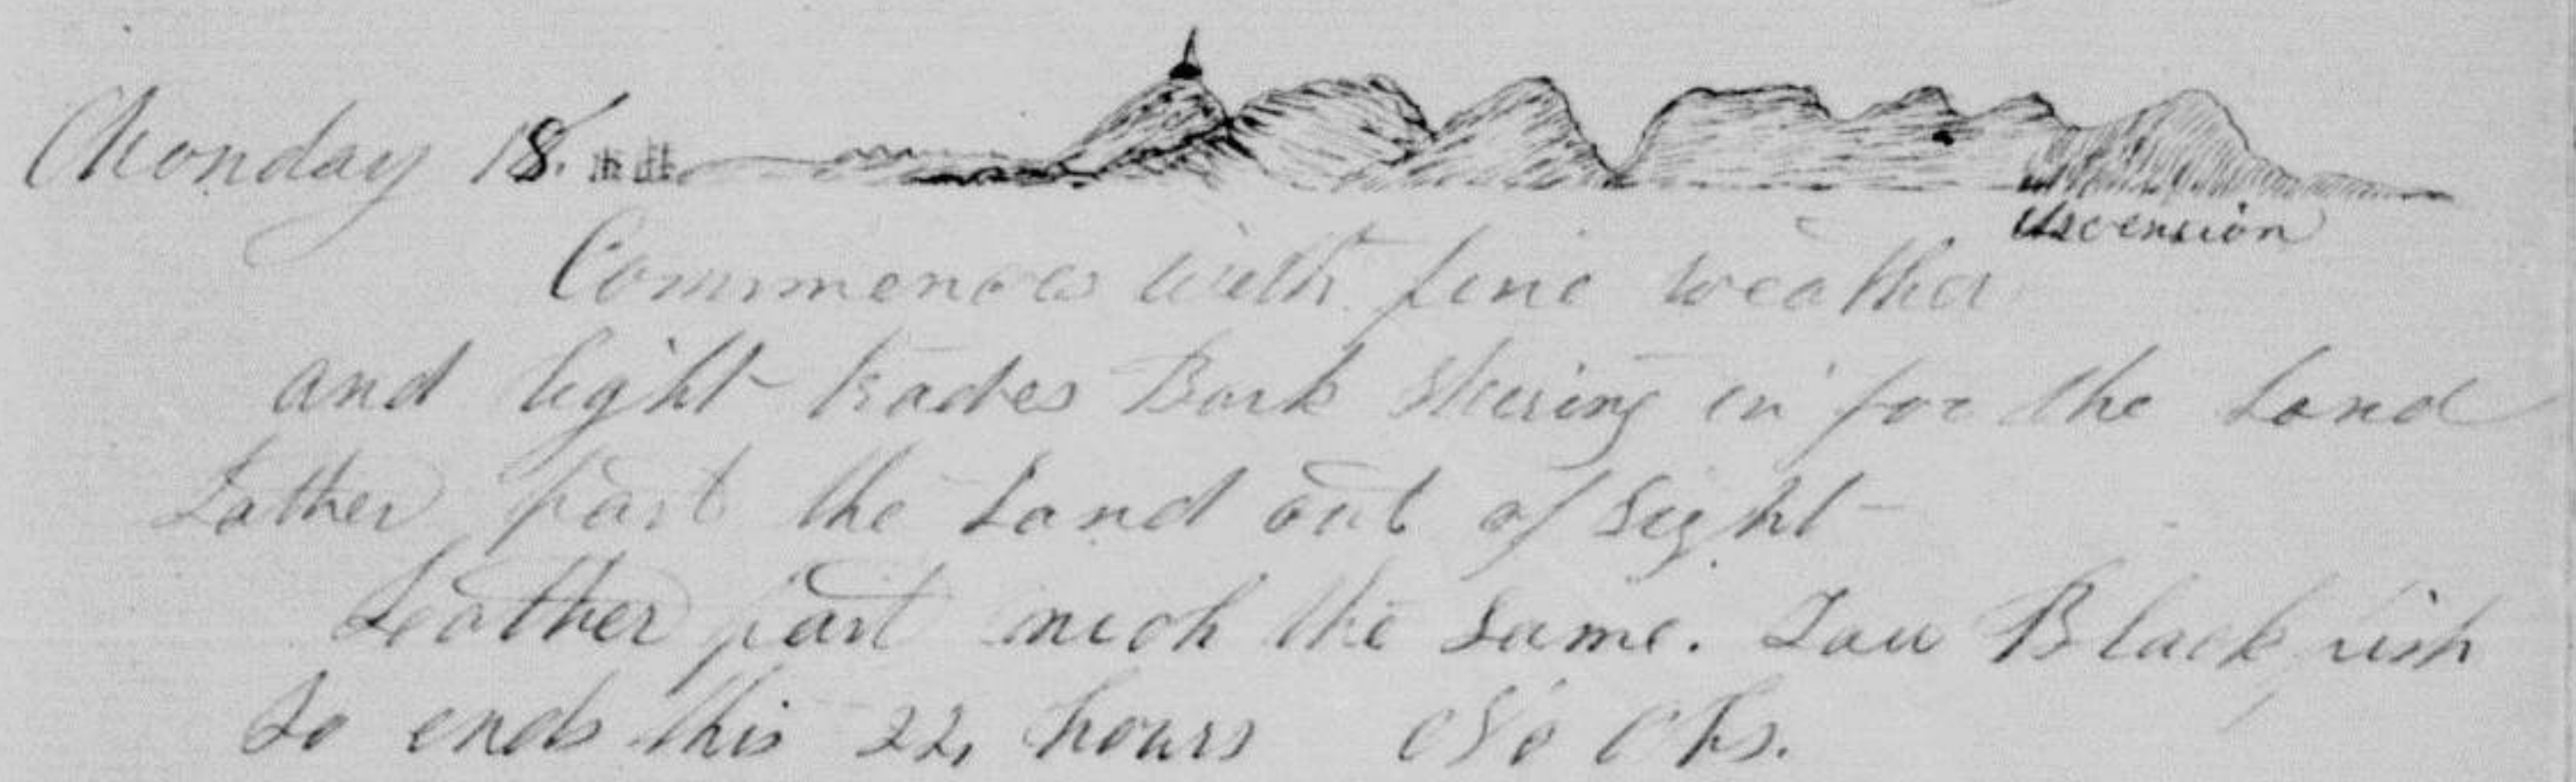 Monday 18.
Ascension
Commences with fine weather
and light trades Bark steering in for the Land
Lather part the Land out of sight
Leather part much the same. Saw Blackfish
So ends this 22, hours